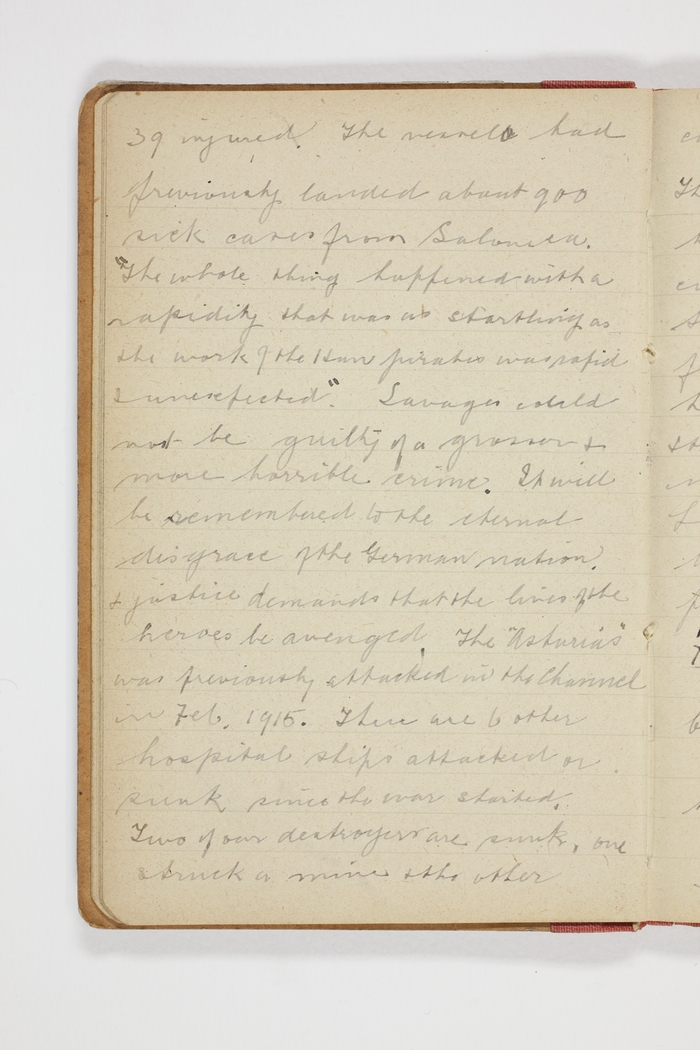 39 injured. The vessel had
previously landed about 900
sick cases from Salonica.
"The whole thing happened with a
rapidity that was as startling as
the work of the Hun pirates was rapid
& unexpected". Savages could
not be guilty of a grosser &
more horrible crime. It will
be remembered to the eternal
disgrace of the German nation.
& justice demands that the lives of the
heroes be avenged. The "Asturias"
was previously attacked in the Channel
in Feb. 1915. There are 6 other
hospital ships attacked or
sunk since the war started.
Two of our destroyers are sunk, one
struck a mine & the other